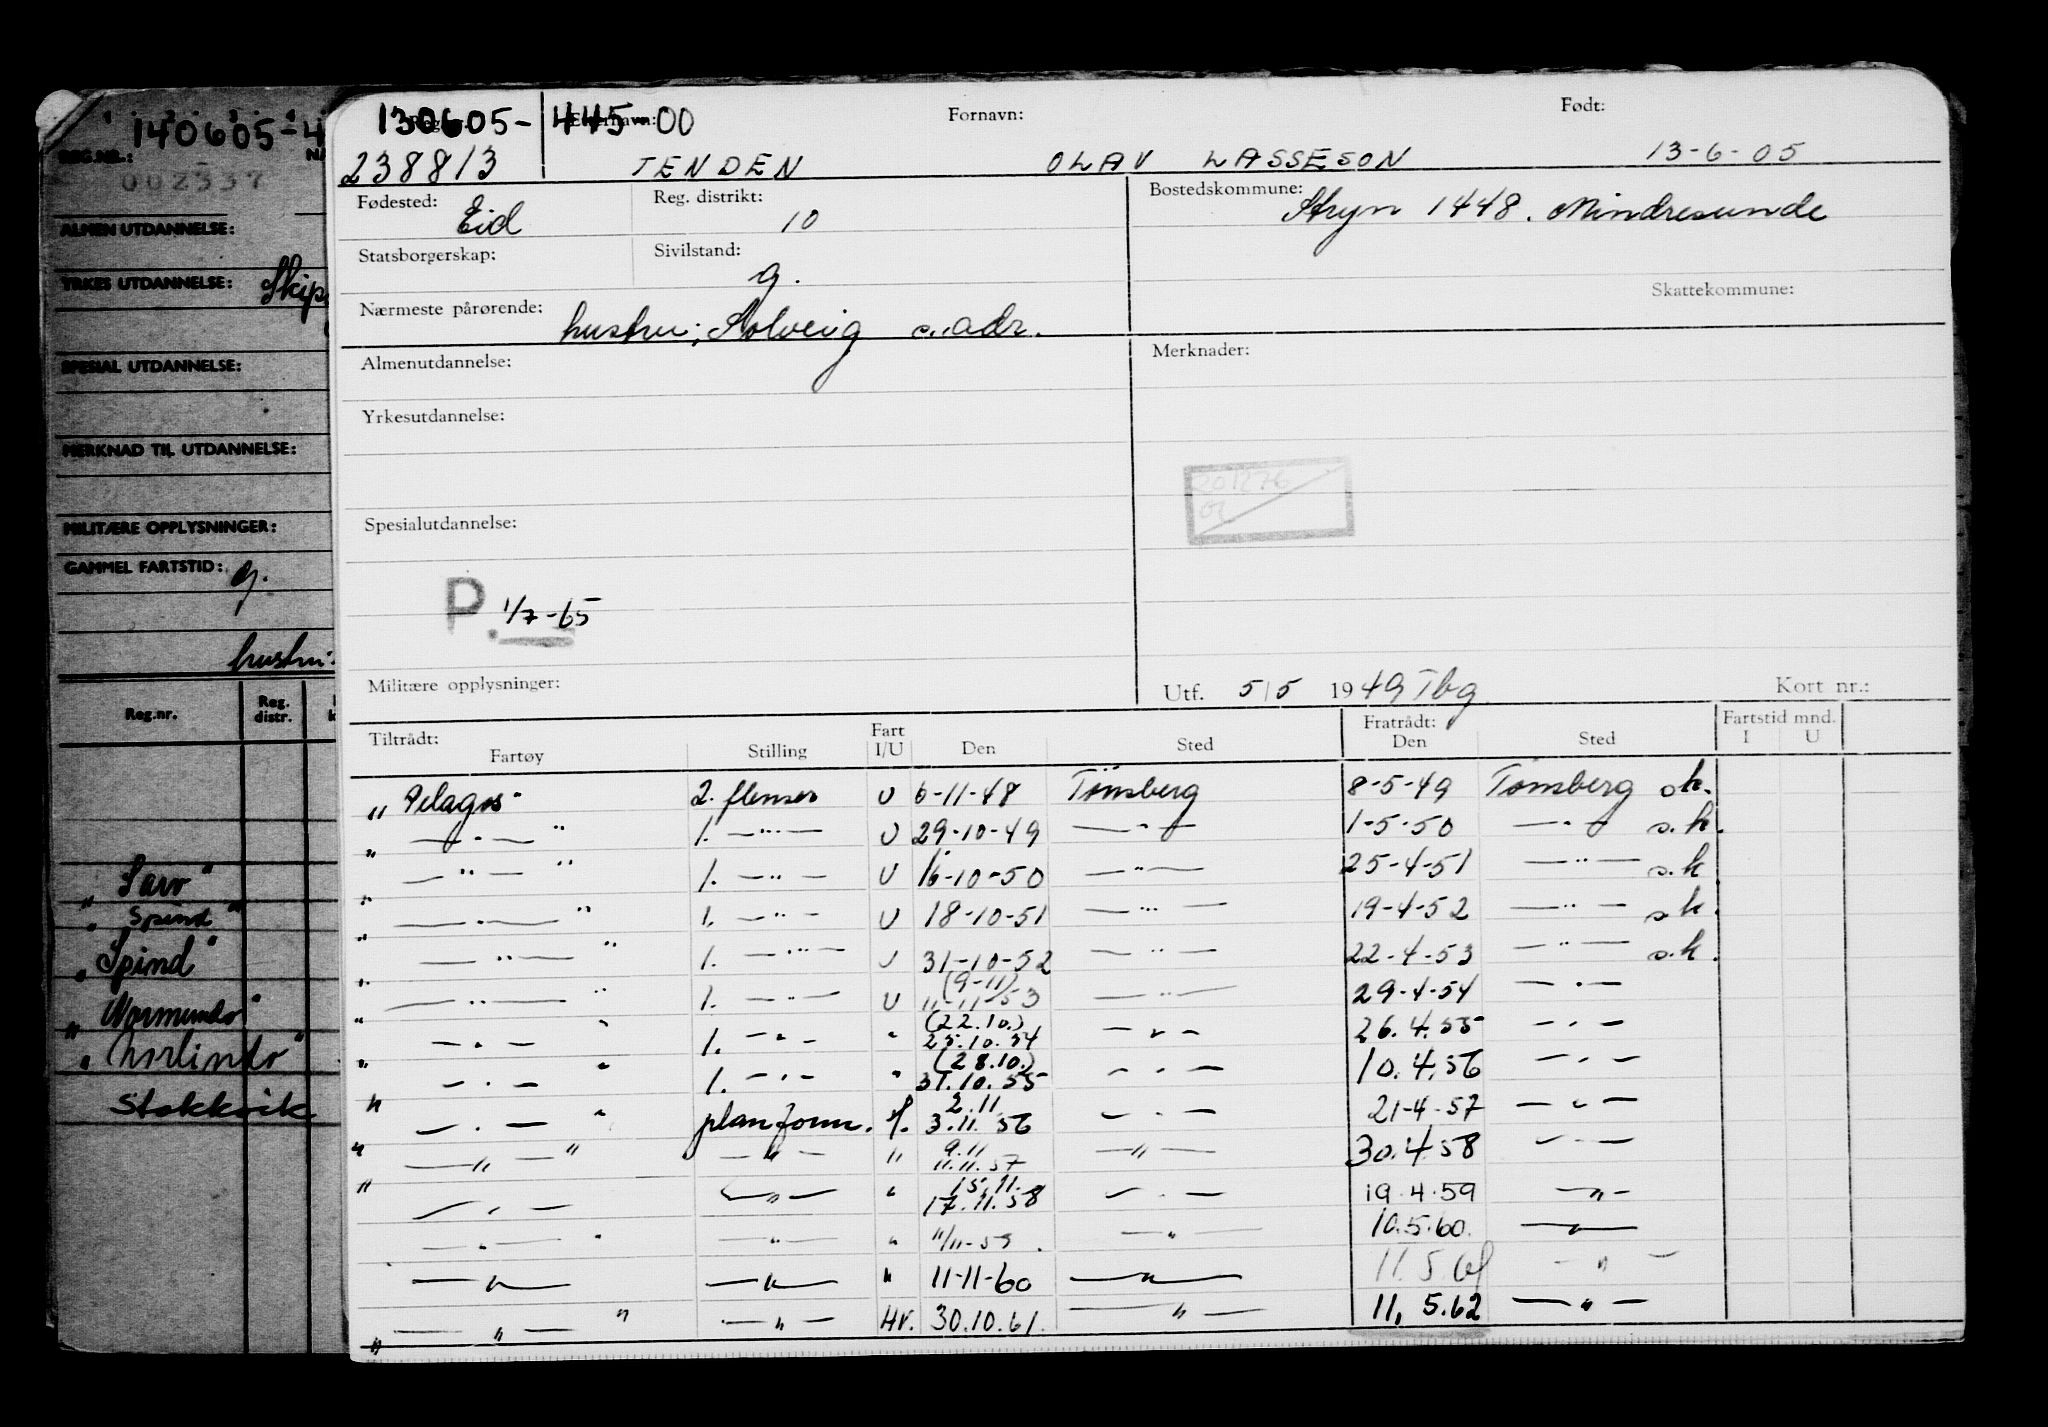 140605-4
REG.NR.:
002337
ALMEN UTDANNELSE:
YRKES UTDANNELSE: Skip
SPESIAL UTDANNELSE:
MERKNAD TIL UTDANNELSE:
MILITÆRE OPPLYSNINGER:
GAMMEL FARTSTID: g.
hustru:
Reg.nr. Reg. distr.
"Saro"
"Spind"
"Spind"
"Normundo"
"Norlindo"
Stokkvik
130605- 445-00 Fornavn: Født:
238813 TENDEN OLAV LASSESON 13-6-05
Fødested: Eid Reg. distrikt: 10 Bostedskommune: Stryn 1448. Mindresunde
Statsborgerskap: Sivilstand: g.
Skattekommune:
Nærmeste pårørende: hustru; Solveig s. adr.
Almenutdannelse: Merknader:
Yrkesutdannelse:
201276
Spesialutdannelse:
P. 1/7-65
Militære opplysninger: Utf. 5/5 1949 Tbg Kort nr.:
Tiltrådt: Fart Fratrådt: Fartstid mnd.
Fartøy Stilling I/U Den Sted Den Sted I U
"Pelagos" 2. flenser U 6-11-48 Tönsberg 8-5-49 Tønsberg s.k.
" — " — " 1. — " — U 29-10-49 — " — 1-5-50 — " — s.k.
" — " — " 1. — " — U 16-10-50 — " — 25-4-51 — " — s.k.
" — " — " 1. — " — U 18-10-51 — " — 19-4-52 — " — s.k.
" — " — " 1. — " — U 31-10-52 — " — 22-4-53 — " — s.k.
" — " — " 1. — " — U (9-11) 11-11-53 — " — 29-4-54 — " —
" — " — " 1. — " — " (22.10.) 25.10.54 — " — 26.4.55 — " —
" — " — " 1. — " — " (28.10.) 31.10.55 — " — 10.4.56 — " —
" — " — " planform. 2.11 3.11.56 — " — 21-4-57 — " —
" — " — " — " — " 9.11 11.11.57 — " — 30.4.58 — " —
" — " — — " — " 15.11. 17.11.58 — " — 19.4.59 — " —
— " — " — " — " 11/11-59. — " — 10.5.60. — " —
— " — — " — " 11-11-60 — " — 11.5.61 — " —
" — " — " — " — Hv. 30.10.61. — " — 11.5.62 — " —